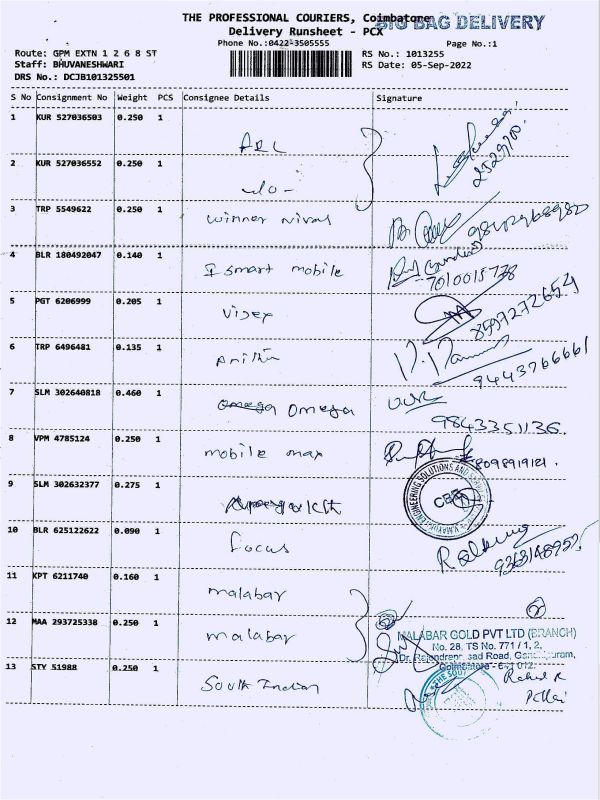 THE PROFESSIONAL COURIERS, Coimbatore
BIG BAG DELIVERY
Delivery Runsheet - PCX
Phone No.:0422-3505555 Page No.:1
Route: GPM EXTN 1 2 6 8 ST RS No.: 1013255
Staff: BHUVANESHWARI RS Date: 05-Sep-2022
DRS No.: DCJB101325501
S No Consignment No Weight PCS Consignee Details Signature
1 KUR 527036503 0.250 1
2 KUR 527036552 0.250 1 -do-
3 TRP 5549622 0.250 1 winner
4 BLR 180492047 0.140 1 I smart mobile 7010015738
5 PGT 6206999 0.205 1 8597272654
6 TRP 6496481 0.135 1 9443766661
7 SLM 302640818 0.460 1 Omega 9843351136.
8 VPM 4785124 0.250 1 mobile max 8098919121.
9 SLM 302632377 0.275 1
ENGINEERING SOLUTIONS AND
10 BLR 625122622 0.090 1 focus
11 KPT 6211740 0.160 1 malabar
12 MAA 293725338 0.250 1 malabar
MALABAR GOLD PVT LTD (BRANCH)
No. 28, TS No. 771 / 1, 2,
Coimbatore - 641 012.
13 STY 51988 0.250 1 South Indian
Rahul R